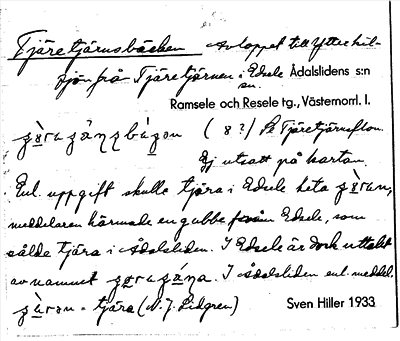 Tjäretjärnsbäcken Avloppet till Ytterhil-
sjön från Tjäretjärnen i Edsele Ådalslidens s:n
sn.
Ramsele och Resele tg., Västernorrl. l.
( 8 ?) Se Tjäretjärnsflon.
Ej utsatt på kartan.
Enl. uppgift skulle tjära i Edsele heta
meddelaren härmade en gubbe från Edsele, som
sålde tjära i Ådalsliden. I Edsele är dock uttalet
av namnet I Ådalsliden enl. meddel.
= tjära (N. J. Lidgren) Sven Hiller 1933